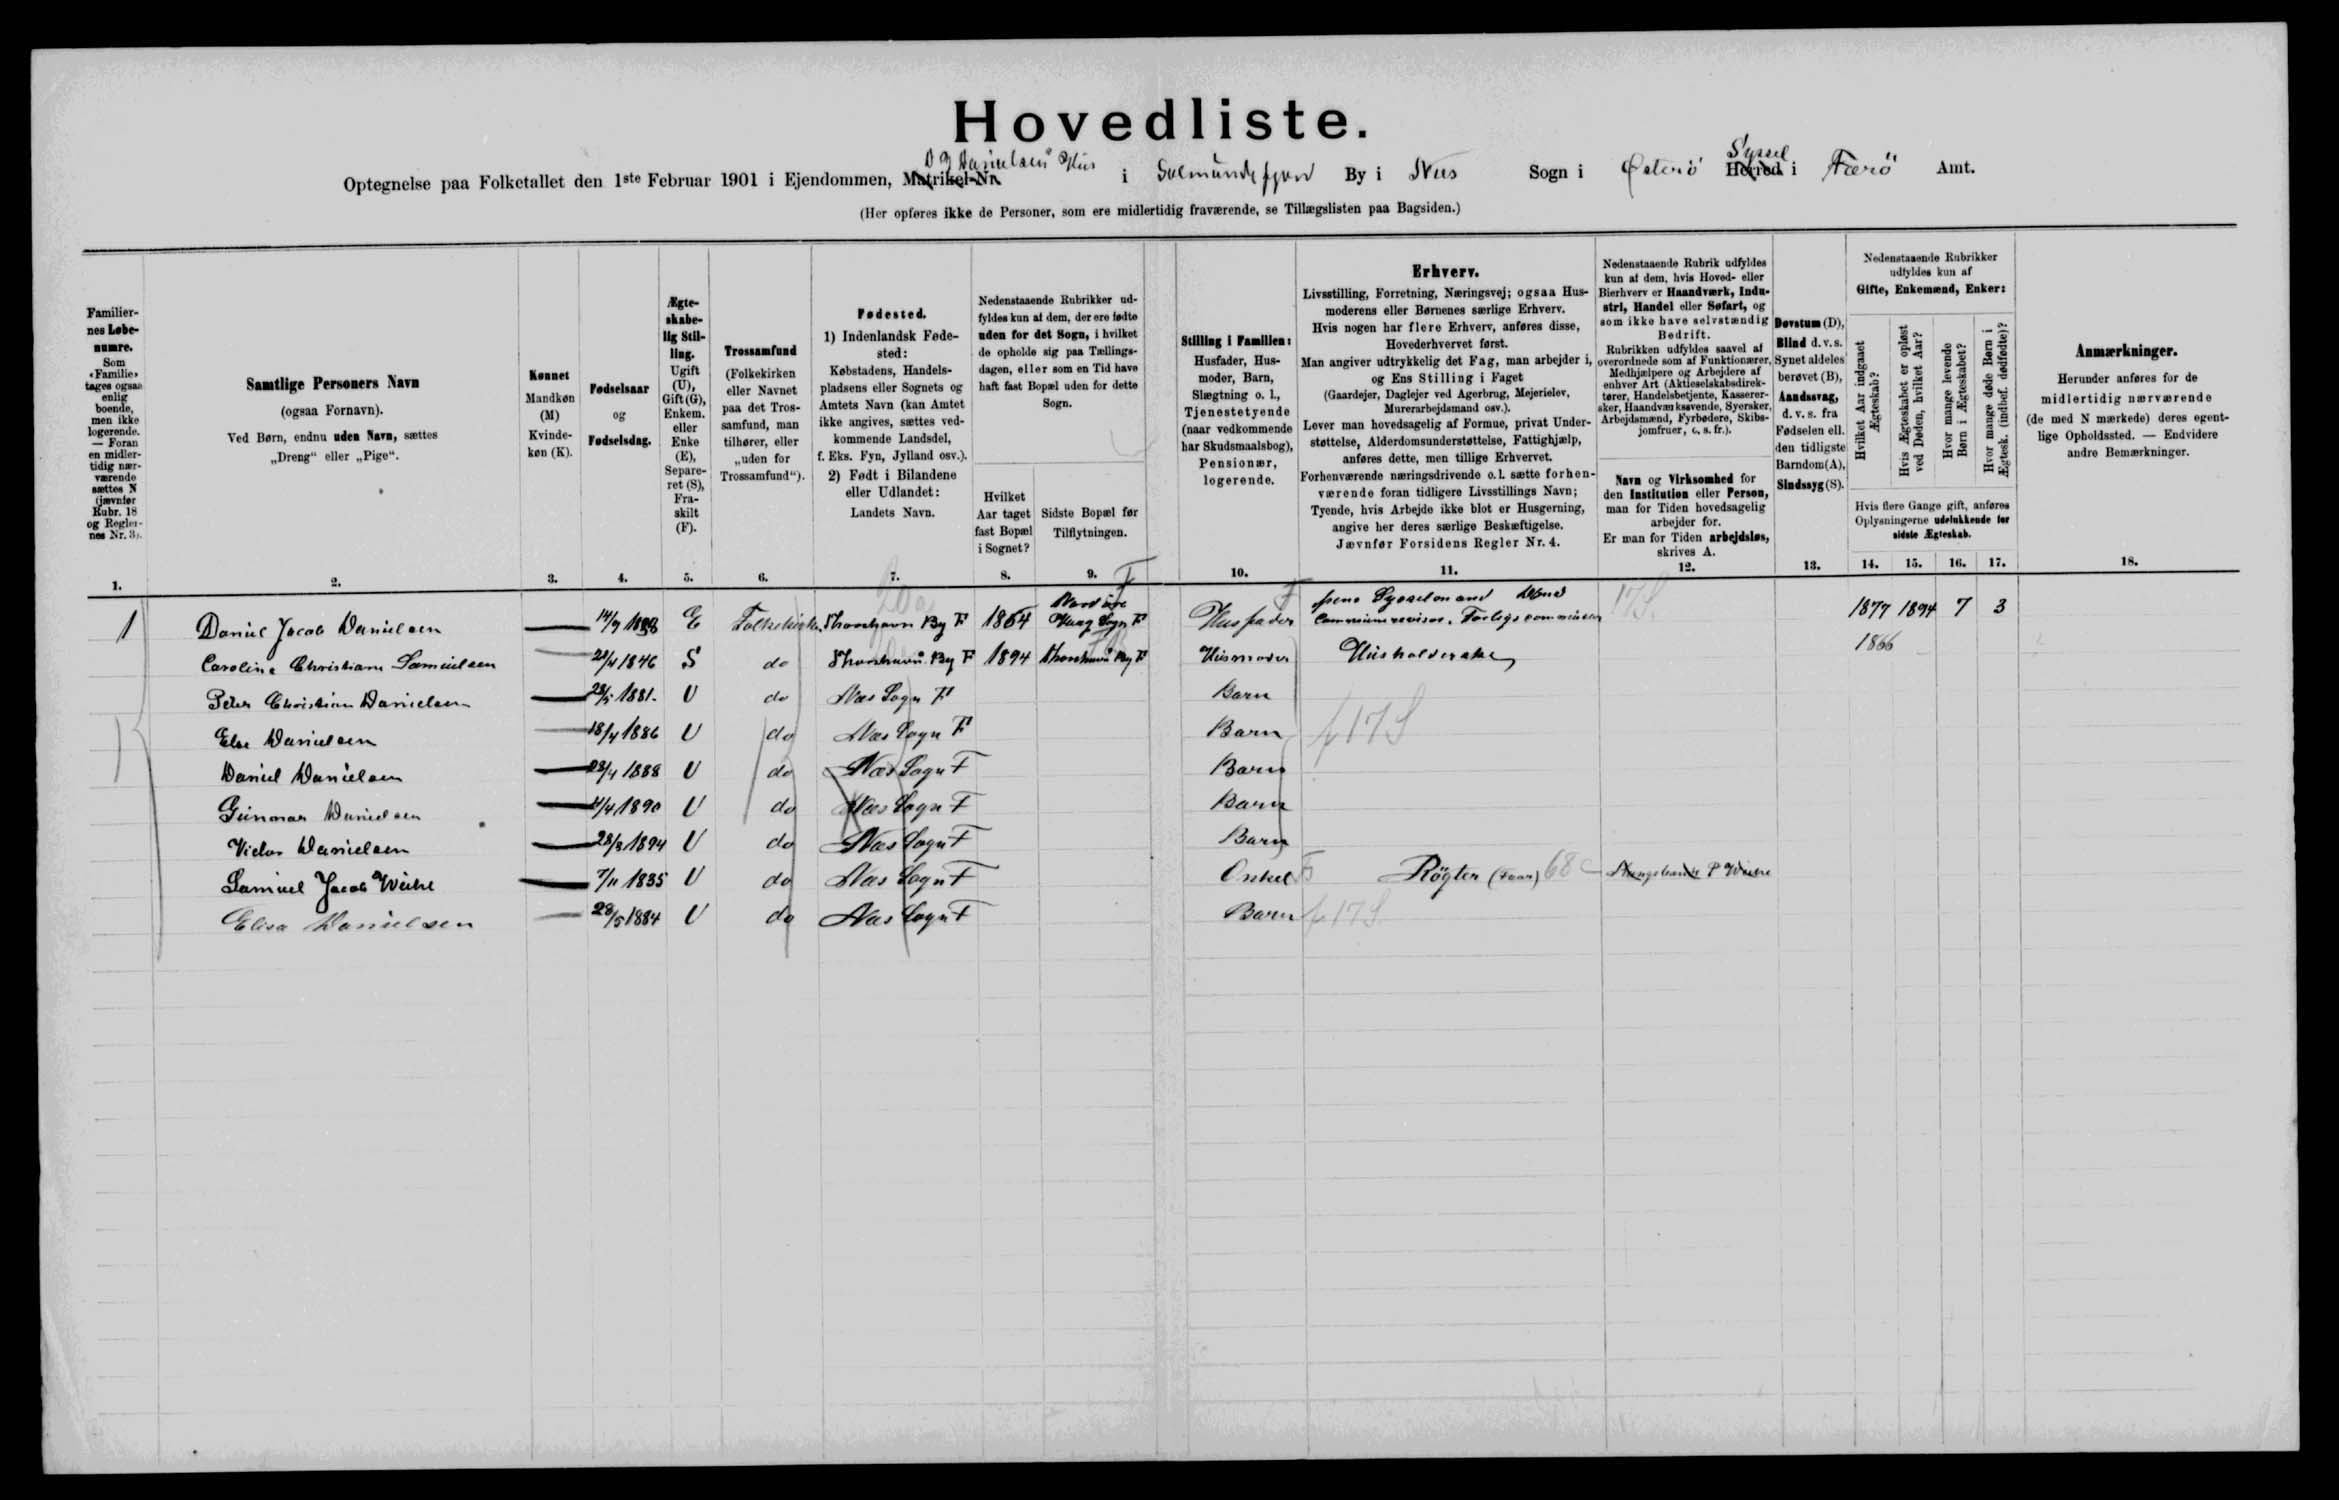 Hovedliste.
Optegnelse paa Folketallet den 1ste Februar 1901 i Ejendommen, Matrikel-Nr. D J Danielsens Hus i Salmundefjord By i Nes Sogn i Østerö Herred Syssel i Færö Amt.
(Her opføres ikke de Personer, som ere midlertidig fraværende, se Tillægslisten paa Bagsiden.)
Familier-
nes Løbe-
numre.
Som
«Familie»
tages ogsaa
enlig
boende,
men ikke
logerende.
— Foran
en midler-
tidig nær-
værende
sættes N
(jævnfør
Rubr. 18
og Regler-
nes Nr. 3).
Samtlige Personers Navn
(ogsaa Fornavn).
Ved Børn, endnu uden Navn, sættes
„Dreng“ eller „Pige“.
Kønnet
Mandkøn
(M)
Kvinde-
køn (K).
Fødselsaar
og
Fødselsdag.
Ægte-
skabe-
lig Stil-
ling.
Ugift
(U),
Gift (G),
Enkem.
eller
Enke
(E),
Separe-
ret (S),
Fra-
skilt
(F).
Trossamfund
(Folkekirken
eller Navnet
paa det Tros-
samfund, man
tilhører, eller
„uden for
Trossamfund“).
Fødested.
1) Indenlandsk Føde-
sted:
Købstadens, Handels-
pladsens eller Sognets og
Amtets Navn (kan Amtet
ikke angives, sættes ved-
kommende Landsdel,
f. Eks. Fyn, Jylland osv.).
2) Født i Bilandene
eller Udlandet:
Landets Navn.
Nedenstaaende Rubrikker ud-
fyldes kun af dem, der ere fødte
uden for det Sogn, i hvilket
de opholde sig paa Tællings-
dagen, eller som en Tid have
haft fast Bopæl uden for dette
Sogn.
Hvilket
Aar taget
fast Bopæl
i Sognet?
Sidste Bopæl før
Tilflytningen.
Stilling i Familien:
Husfader, Hus-
moder, Barn,
Slægtning o. l.,
Tjenestetyende
(naar vedkommende
har Skudsmaalsbog),
Pensionær,
logerende.
Erhverv.
Livsstilling, Forretning, Næringsvej; ogsaa Hus-
moderens eller Børnenes særlige Erhverv.
Hvis nogen har flere Erhverv, anføres disse,
Hovederhvervet først.
Man angiver udtrykkelig det Fag, man arbejder i,
og Ens Stilling i Faget
(Gaardejer, Daglejer ved Agerbrug, Mejerielev,
Murerarbejdsmand osv.).
Lever man hovedsagelig af Formue, privat Under-
støttelse, Alderdomsunderstøttelse, Fattighjælp,
anføres dette, men tillige Erhvervet.
Forhenværende næringsdrivende o.l. sætte forhen-
værende foran tidligere Livsstillings Navn;
Tyende, hvis Arbejde ikke blot er Husgerning,
angive her deres særlige Beskæftigelse.
Jævnfør Forsidens Regler Nr. 4.
Nedenstaaende Rubrik udfyldes
kun af dem, hvis Hoved- eller
Bierhverv er Haandværk, Indu-
stri, Handel eller Søfart, og
som ikke have selvstændig
Bedrift.
Rubrikken udfyldes saavel af
overordnede som af Funktionærer,
Medhjælpere og Arbejdere af
enhver Art (Aktieselskabsdirek-
tører, Handelsbetjente, Kasserer-
sker, Haandværkssvende, Syersker,
Arbejdsmænd, Fyrbødere, Skibs-
jomfruer, o. s. fr.).
Navn og Virksomhed for
den Institution eller Person,
man for Tiden hovedsagelig
arbejder for.
Er man for Tiden arbejdsløs,
skrives A.
Døvstum (D),
Blind d. v. s.
Synet aldeles
berøvet (B),
Aandssvag,
d. v. s. fra
Fødselen ell.
den tidligste
Barndom (A),
Sindssyg (S).
Nedenstaaende Rubrikker
udfyldes kun af
Gifte, Enkemænd, Enker:
Hvilket Aar indgaaet
Ægteskab?
Hvis Ægteskabet er opløst
ved Døden, hvilket Aar?
Hvor mange levende
Børn i Ægteskabet?
Hvor mange døde Børn i
Ægtesk. (indbef. dødfødte)?
Hvis flere Gange gift, anføres
Oplysningerne udelukkende for
sidste Ægteskab.
Anmærkninger.
Herunder anføres for de
midlertidig nærværende
(de med N mærkede) deres egent-
lige Opholdssted. — Endvidere
andre Bemærkninger.
1. 2. 3. 4. 5. 6. 7. 8. 9. 10. 11. 12. 13. 14. 15. 16. 17. 18.
1 Daniel Jacob Danielsen E Folkekirken Thorshavn By F Sogn F Husfader 17S. 1877 1894 7 3
Caroline Christiane Samuelsen 1846 S do Thorshavn By F 1894 Thorshavn By F Husmoder Husholderske 1866
Peter Christian Danielsen 1881. U do Næs Sogn F Barn
Else Danielsen 18/4 1886 U do Næs Sogn F Barn f 17 S
Daniel Danielsen 1888 U do Næs Sogn F Barn
Gunnar Danielsen 1890 U do Næs Sogn F Barn
Victor Danielsen 28/3 1894 U do Næs Sogn F Barn
Samuel Jacob Weihe 7/11 1835 U do Næs Sogn F Onkel F Rögter (Faar) 68 c P Weihe
Elisa Danielsen 28/5 1884 U do Næs Sogn F Barn f 17 S.